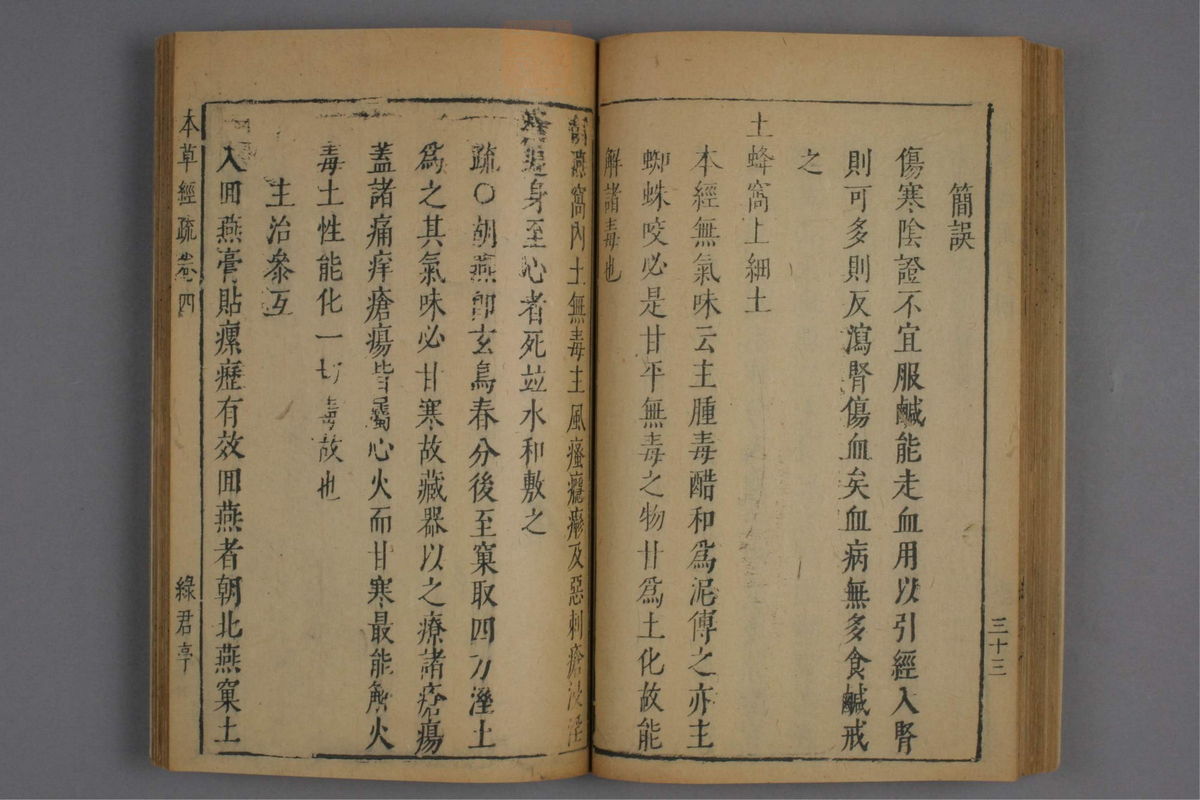 三十三
簡誤
傷寒陰證不宜服鹹能走血用以引經入腎
則可多則反瀉腎傷血矣血病無多食鹹戒
之
土蜂窩上細土
本經無氣味云主腫毒醋和爲泥傅之亦主
蜘蛛咬必是甘平無毒之物甘爲土化故能
解諸毒也
燕窩內土無毒主風瘙癮疹及惡刺瘡浸淫
遶身至心者死並水和敷之
疏〇胡燕卽玄鳥春分後至窠取四方溼土
爲之其氣味必甘寒故藏器以之療諸瘡瘍
蓋諸痛痒瘡瘍皆屬心火而甘寒最能解火
毒土性能化一切毒故也
主治參互
入囬燕膏貼瘰癧有效囬燕者朝北燕窠土
本草經疏 卷四 綠君亭